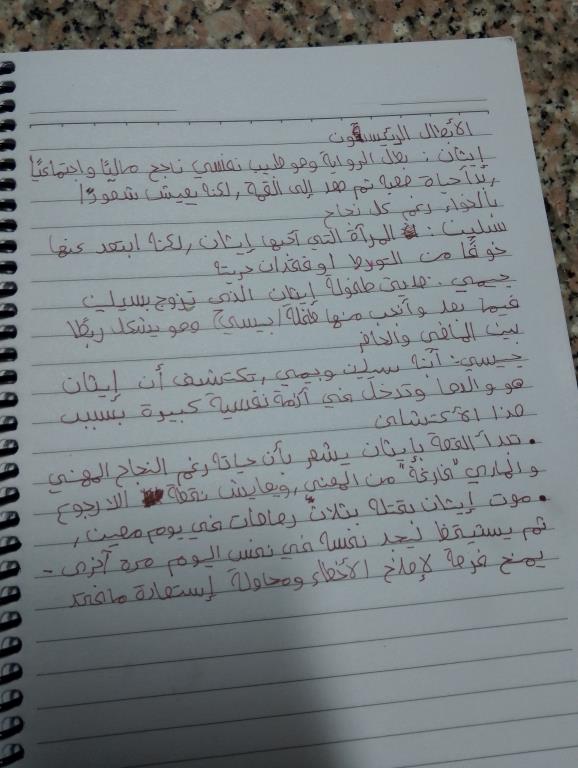 الأبطال الرئيسيون
إيثان : بطل الرواية وهو طبيب نفسي ناجح ماليًا واجتماعيًا
بدأ حياة صعبة ثم صعد إلى القمة , لكنه يعيش شعورًا
بالخواء رغم كل نجاح
سيلين : المرأة التي أحبها إيثان , لكنه ابتعد عنها
خوفًا من التورط أو فقدان حريته
جيمي : صديق طفولة إيثان الذي تزوج بسيلين
فيما بعد وأنجب منها طفلة / جيسي / وهو يشكل ربطًا
بين الماضي والحاضر
جيسي : ابنة سيلين وجيمي , تكتشف أن إيثان
هو والدها وتدخل في أزمة نفسية كبيرة بسبب
هذا الاكتشاف
. تبدأ القصة بإيثان يشعر بأن حياته رغم النجاح المهني
والمادي "فارغة" من المعنى , ويعايش نقطة اللارجوع
. موت إيثان بقتله بثلاث رصاصات في يوم معين ,
ثم يستيقظ ليجد نفسه في نفس اليوم مرة أخرى -
يمنح فرصة لإصلاح الأخطاء ومحاولة إستعادة ما فقد